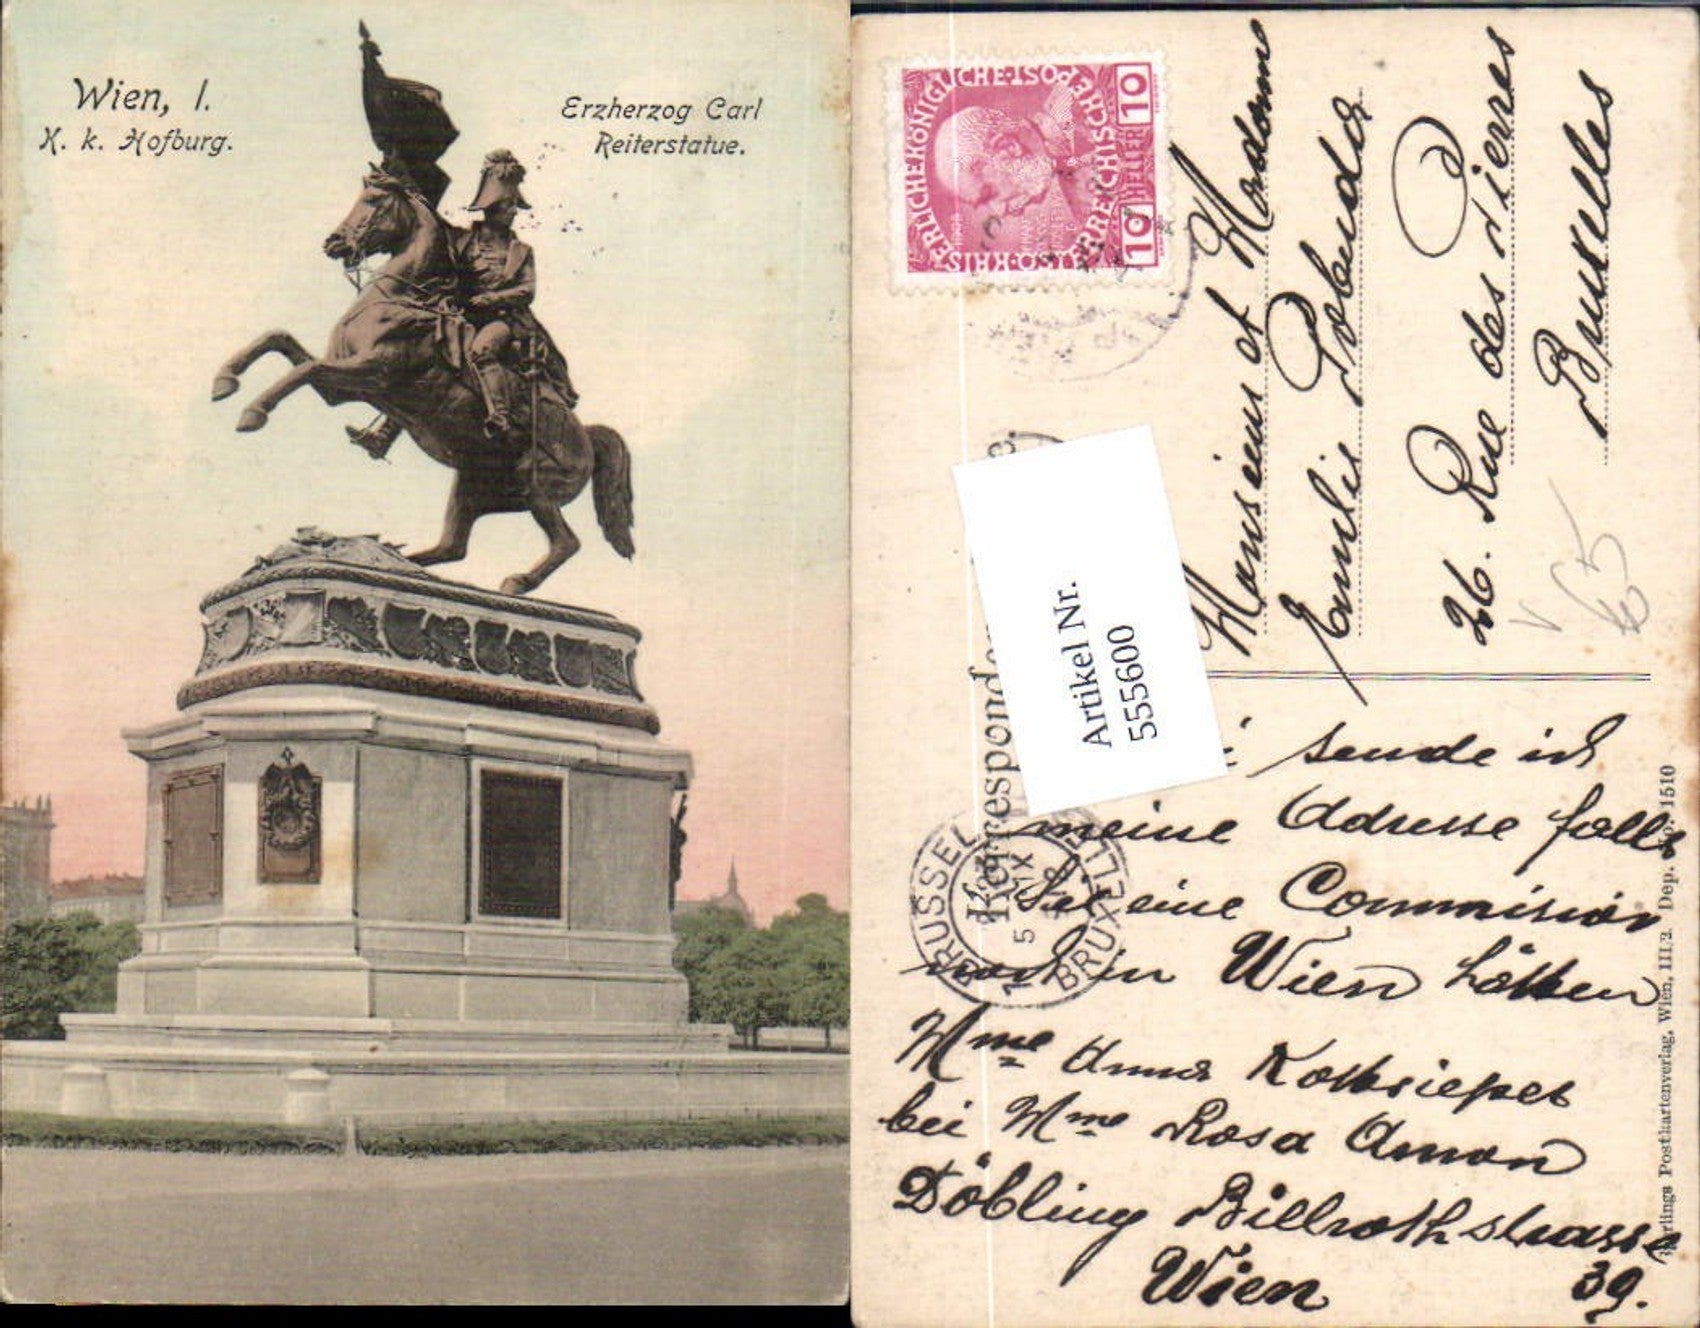 Wien, I.
K. k. Hofburg.
Erzherzog Carl
Reiterstatue.
KAISERLICHE KÖNIGLICHE ÖSTERREICHISCHE POST
10 HELLER 10
Monsieur et Madame
Emilie
26. Rue des Pierres
Bruxelles
Artikel Nr.
555600
Korresponden
BRUSSEL
BRUXELLES
5 IX
sende ich
meine Adresse falls
Sie eine Commission
noch in Wien hätten
Mme Anna
bei Mme Rosa Amon
Döbling Billrothstrasse
Wien 39.
Postkartenverlag, Wien, III/2. Dep. No. 1510